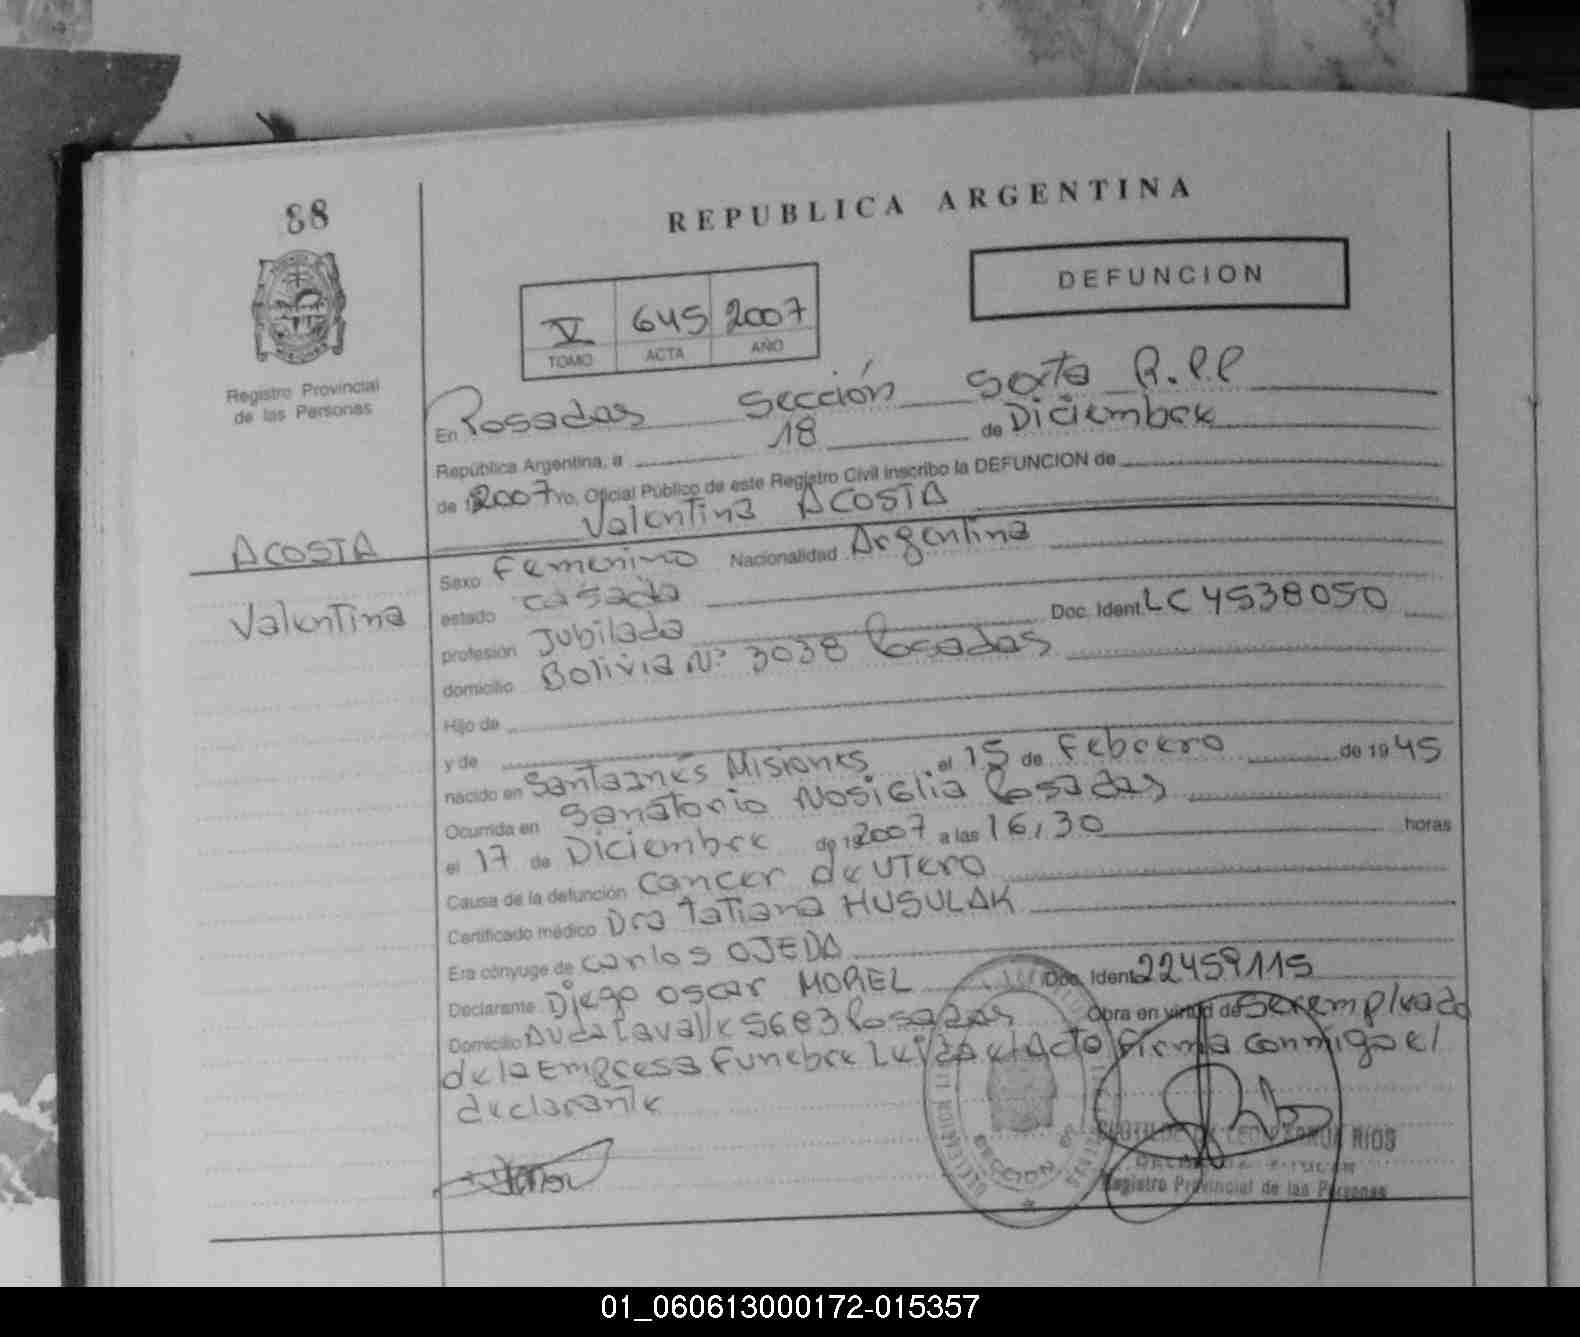 88
REPUBLICA ARGENTINA
DEFUNCION
V 645 2007
TOMO ACTA AÑO
Registro Provincial
de las Personas
En Posadas Sección Sexta R.P.P
República Argentina, a 18 de Diciembre
de 12007 Yo, Oficial Público de este Registro Civil inscribo la DEFUNCION de
Valentina ACOSTA
ACOSTA
Valentina
Sexo Femenino Nacionalidad Argentina
estado casada
profesión Jubilada Doc. Ident. LC 4538050
domicilio Bolivia Nº 3038 Posadas
Hijo de
y de
nacido en Santa Inés Misiones el 15 de Febrero de 1945
Ocurrida en Sanatorio Nosiglia Posadas
el 17 de Diciembre de 192007 a las 16,30 horas
Causa de la defunción cancer de UTero
Certificado médico Dra Tatiana HUSULAK
Era cónyuge de carlos OJEDA
Declarante Diego Oscar MOREL Doc. Ident. 22459115
Domicilio Avda Lavalle 5683 Posadas Obra en virtud de ser empleado
de la Empresa Funebre Leida el Acto firma conmigo el
declarante
SECCION
RIOS
Registro Provincial de las Personas
01_060613000172-015357